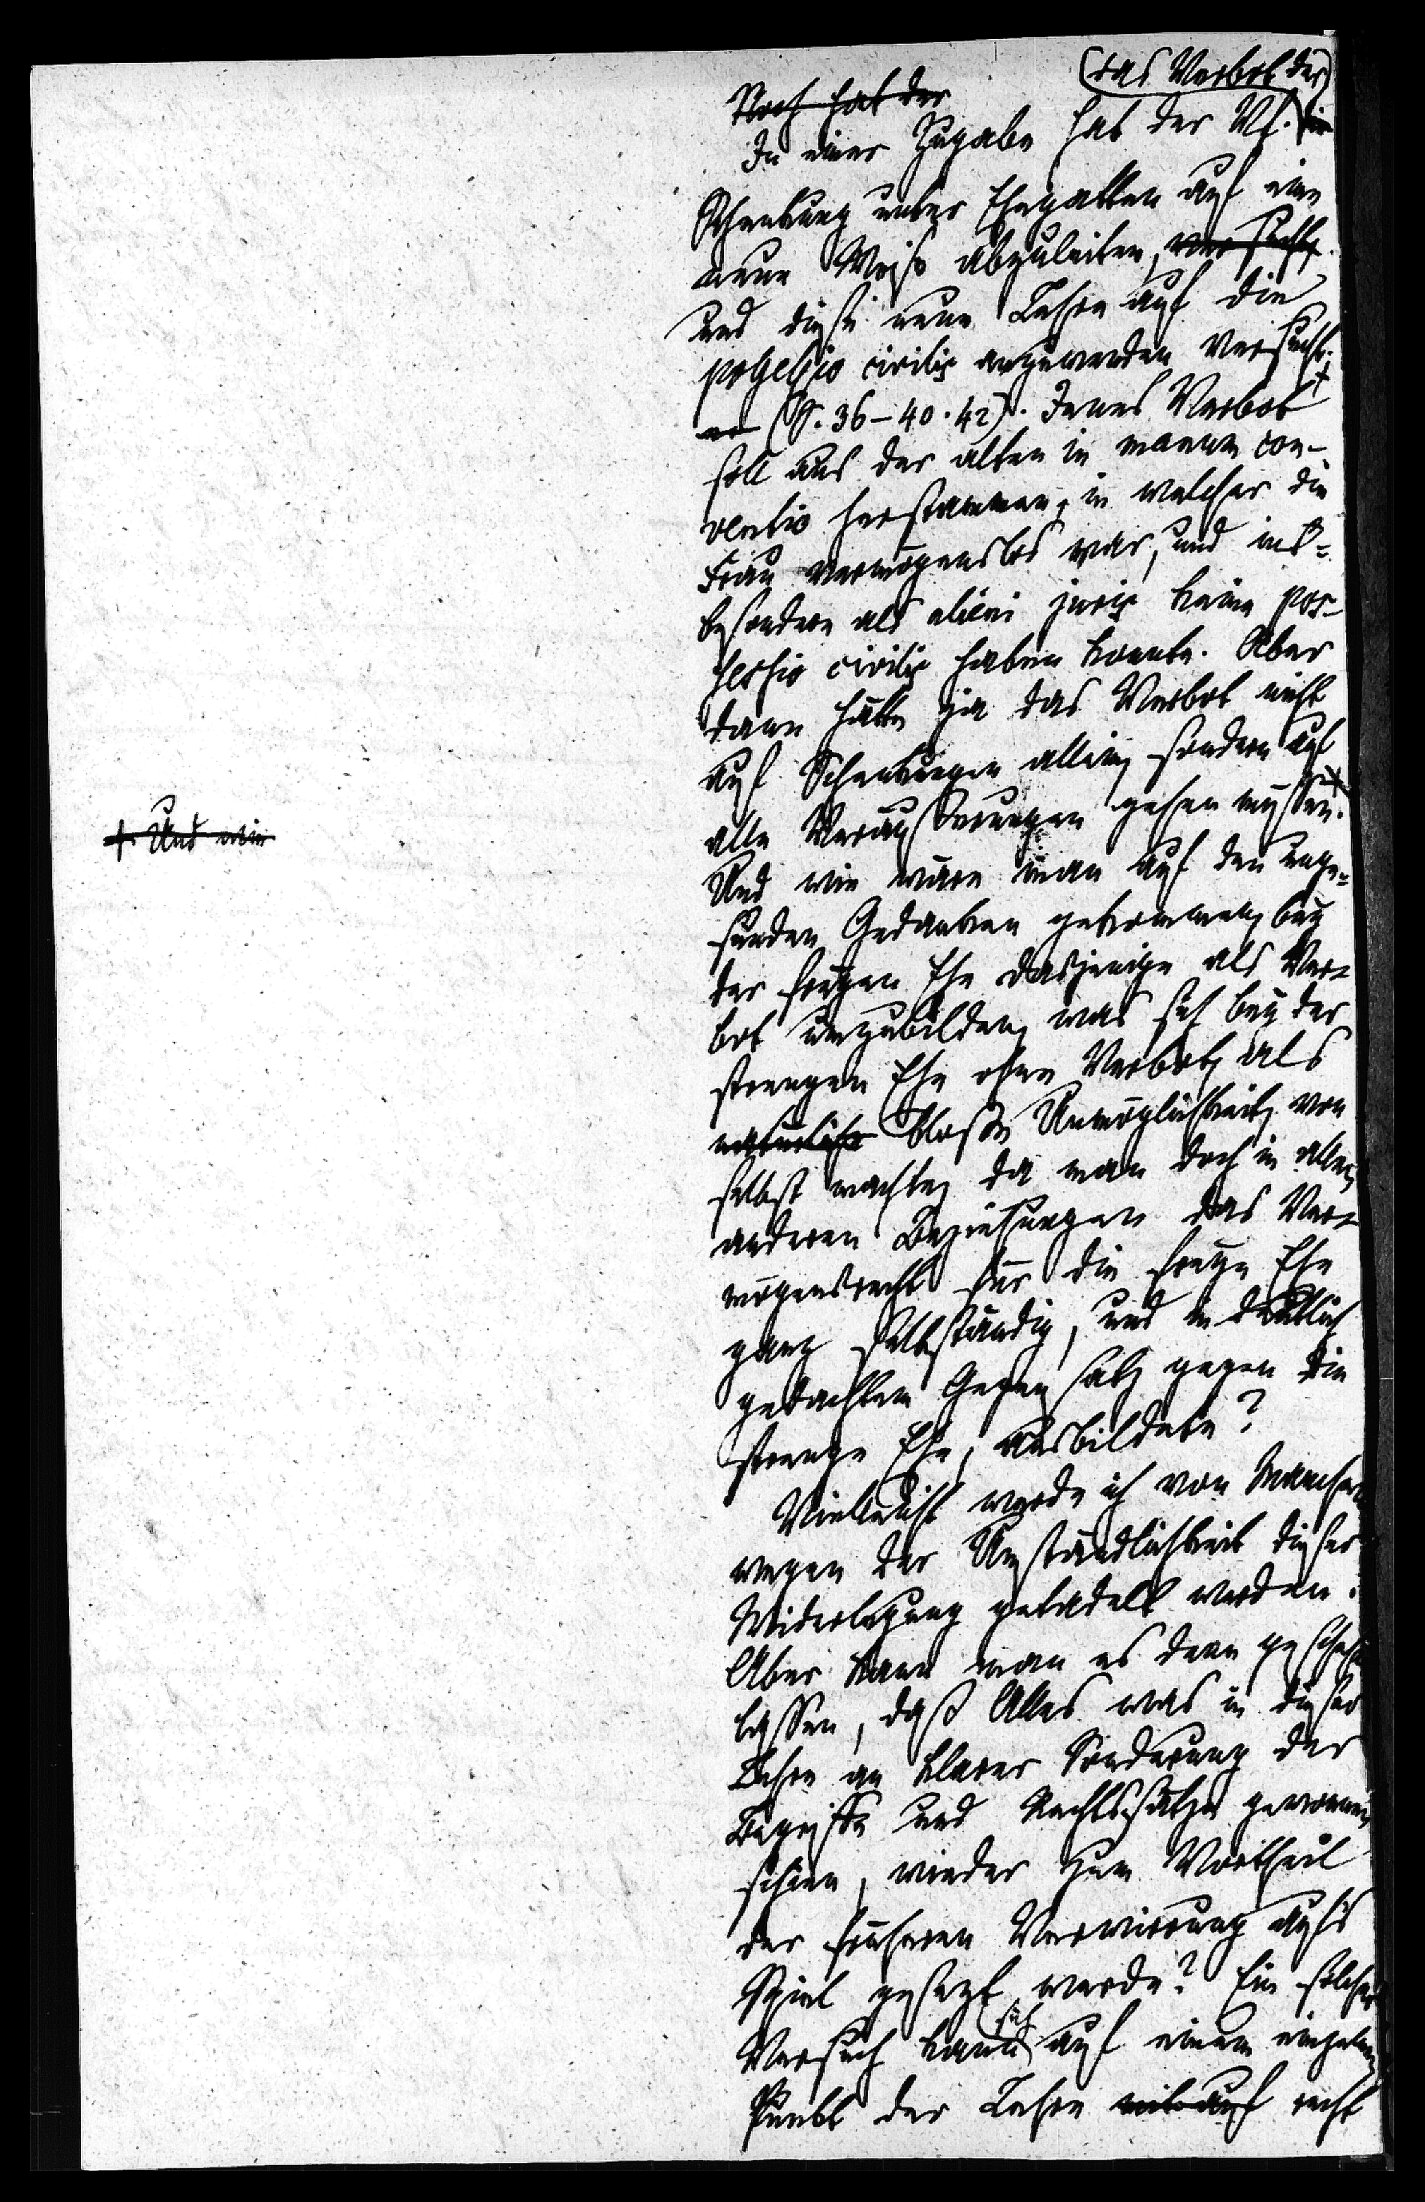 Noch hat der
das Verbot der
In einer Zugabe hat der Vf. die
Schenkung unter Ehegatten auf eine
neue Weise abzuleiten, versucht.
und diese neue Lehre auf die
possessio civilis anzuwenden versucht.
(S. 36–40. 42). Jenes Verbot
soll aus der alten in manum con-
ventio herstammen, in welcher die
Frau vermögenslos war, und ins-
besondere als alieni juris keine pos-
sessio civilis haben konnte. Aber
dann hätte ja das Verbot nicht
auf Schenkungen allein, sondern auf
alle Veräußerungen gehen müssen. +
+ Und wie
Und wie wäre man auf den unge-
sunden Gedanken gekommen, bey
der freyen Ehe dasjenige als Ver-
bot umzubilden, was sich bey der
strengen Ehe ohne Verbot, als
natürliche bloße Unmöglichkeit, von
selbst machte, da man doch in allen
anderen Beziehungen das Ver-
mögensrecht für die freye Ehe
ganz selbständig, und in deutlich
gedachtem Gegensatz gegen die
strenge Ehe, ausbildete?
Vielleicht werde ich von Manchen
wegen der Umständlichkeit dieser
Widerlegung getadelt werden.
Aber kann man es denn geschehen
lassen, daß Alles was in dieser
Lehre an klarer Sonderung der
Begriffe und Rechtssätze gewonnen
schien, wieder zum Vortheil
der früheren Verwirrung aufs
Spiel gesetzt werde? Ein solcher
Versuch kann sich auf einem einzelnen
Punkt der Lehre mit auf recht